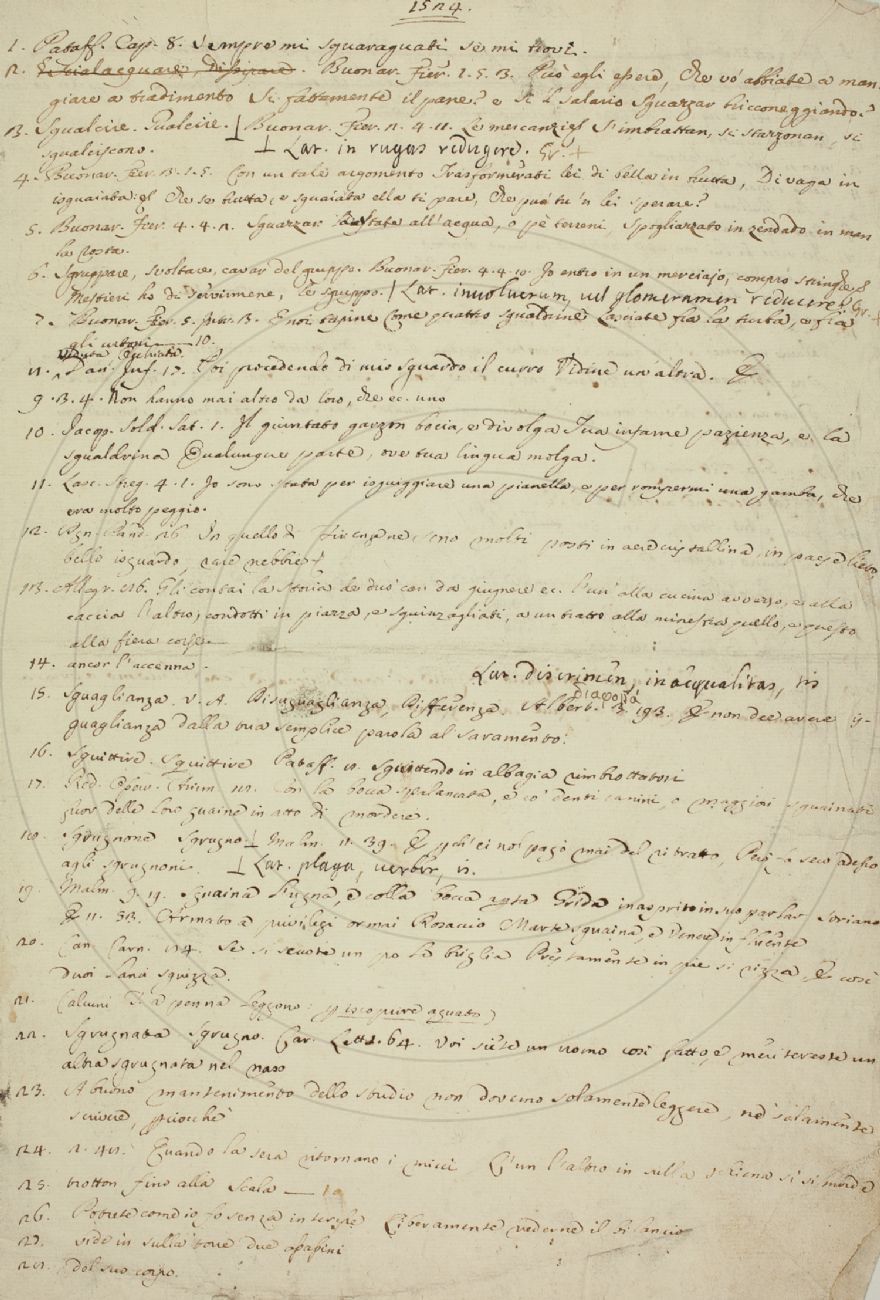 1524.
1. Pataff. Cap. 8. Sempre mi sguaraguati se mi trovi.
2. Scialacquare, Dissipare. Buonar. Fier. 1. 5. 3. Può egli essere, che vo' abbiate a man
giare a tradimento Sì fattamente il pane? e sì 'l Salario Sguazzar bricconeggiando?
3. Sgualcire. Gualcire. ⊥ Buonar. Fier. 4. 11. Le mercanzie S'imbrattan, si stazzonan, si
sgualciscono. ⊥ Lat. in rugas redigere. Gr. +
4. Buonar. Fier. 3. 1. 5. Con un tale argomento Trasformerati lei di bella in brutta, Di vaga in
isguaiata: E che se brutta, e sguaiata ella ti pare, Che può tu 'n lei sperare?
5. Buonar. Fier. 4. 4. 2. Sguazzar la state all'acqua, o pe' terreni, Spogliazzato in zendado in man
la rosta.
6. Sgruppare, svoltare, cavar del gruppo. Buonar. Fier. 4. 4. Io entro in un merciajo, compro stringhe, E
Mestieri ho di servirmene, le sgruppo. ⊥ Lat. involucrum, vel glomeramen reducere. Gr. +
7. Buonar. Fier. 5. E noi tapine Come quattro sgualdrine Lasciate fra la turba, e fra
gli urtoni — 10.
Veduta Occhiata
8. Dan. Inf. 17. Poi procedendo di mio sguardo il curro Vidine un'altra. E
9. 3. 4. Non hanno mai altro da loro, che ec. uno
10. Jacop. Sold. Sat. 1. Il giuntato garzon bocia, e divolga Tua infame pazienza, e la
sgualdrina Qualunque parte, ove tua lingua molga.
11. Lasc. Streg. 4. 1. Io sono stata per isguiggiare una pianella, e per rompermi una gamba, che
era molto peggio.
12. In quello di Firenze ne sono molti posti in aere cristallina, in paese lieto,
bello isguardo, rare nebbie
13. Allegr. 216. Gli contai la Storia de' duo' can da giugnere ec. l'un' alla cucina avvezzo, e alla
caccia l'altro; condotti in piazza, e sguinzagliati, a un tratto alla minestra quello, e questo
alla fiera corse —
14. ancor l'accenna.
Lat. discrimen, inaequalitas, tis
διαφορά
15. Sguaglianza. V. A. Disuguaglianza, Differenza. Albert. 193. E non dee avere i-
guaglianza dalla tua semplice parola al saramento.
16. Squittire. Squittire Pataff. Squittendo in albagia rimbrottatosi
17. Red. Con la bocca spalancata, e co' denti canini, o maggiori sguainati
fuor delle loro guaine in atto di mordere.
18. Sgrugnone Sgrugno ⊥ Malm. 11. 39. E perch' ei nol pagò mai del ritratto, Però fa seco adesso
agli sgrugnoni. ⊥ Lat. plaga, verber, is.
19. Malm. 9. 4. Sguaina l'ugna, e colla bocca Grida inasprito in suo parlar Soriano
E 11. 33. Armato a privilegi ormai Rosaccio Marte sguaina, e Venere in
20. Can. Carn. 124. Se si scuote un po' la briglia Prestamente in piè si rizza, E così
duoi Lanzi sguizza.
21. Calcuni T. a penna leggono: aguato)
22. Sgrugnata Sgrugno. Car. Lett. 64. Voi siete un uomo così fatto, e meritereste un
altra sgrugnata nel naso
23. A buono mantenimento dello studio non dovemo solamente leggere, né solamente
scrivere, perocchè
24. Quando la sera ritornano i mici L'un l'altro in sulla schiena si si morde
25. trotton fino alla Scala —
26. Potrete com'io fo senza interesse Liberamente vederne il bilancio
27. vide in sulla torre due
28. del suo corpo.